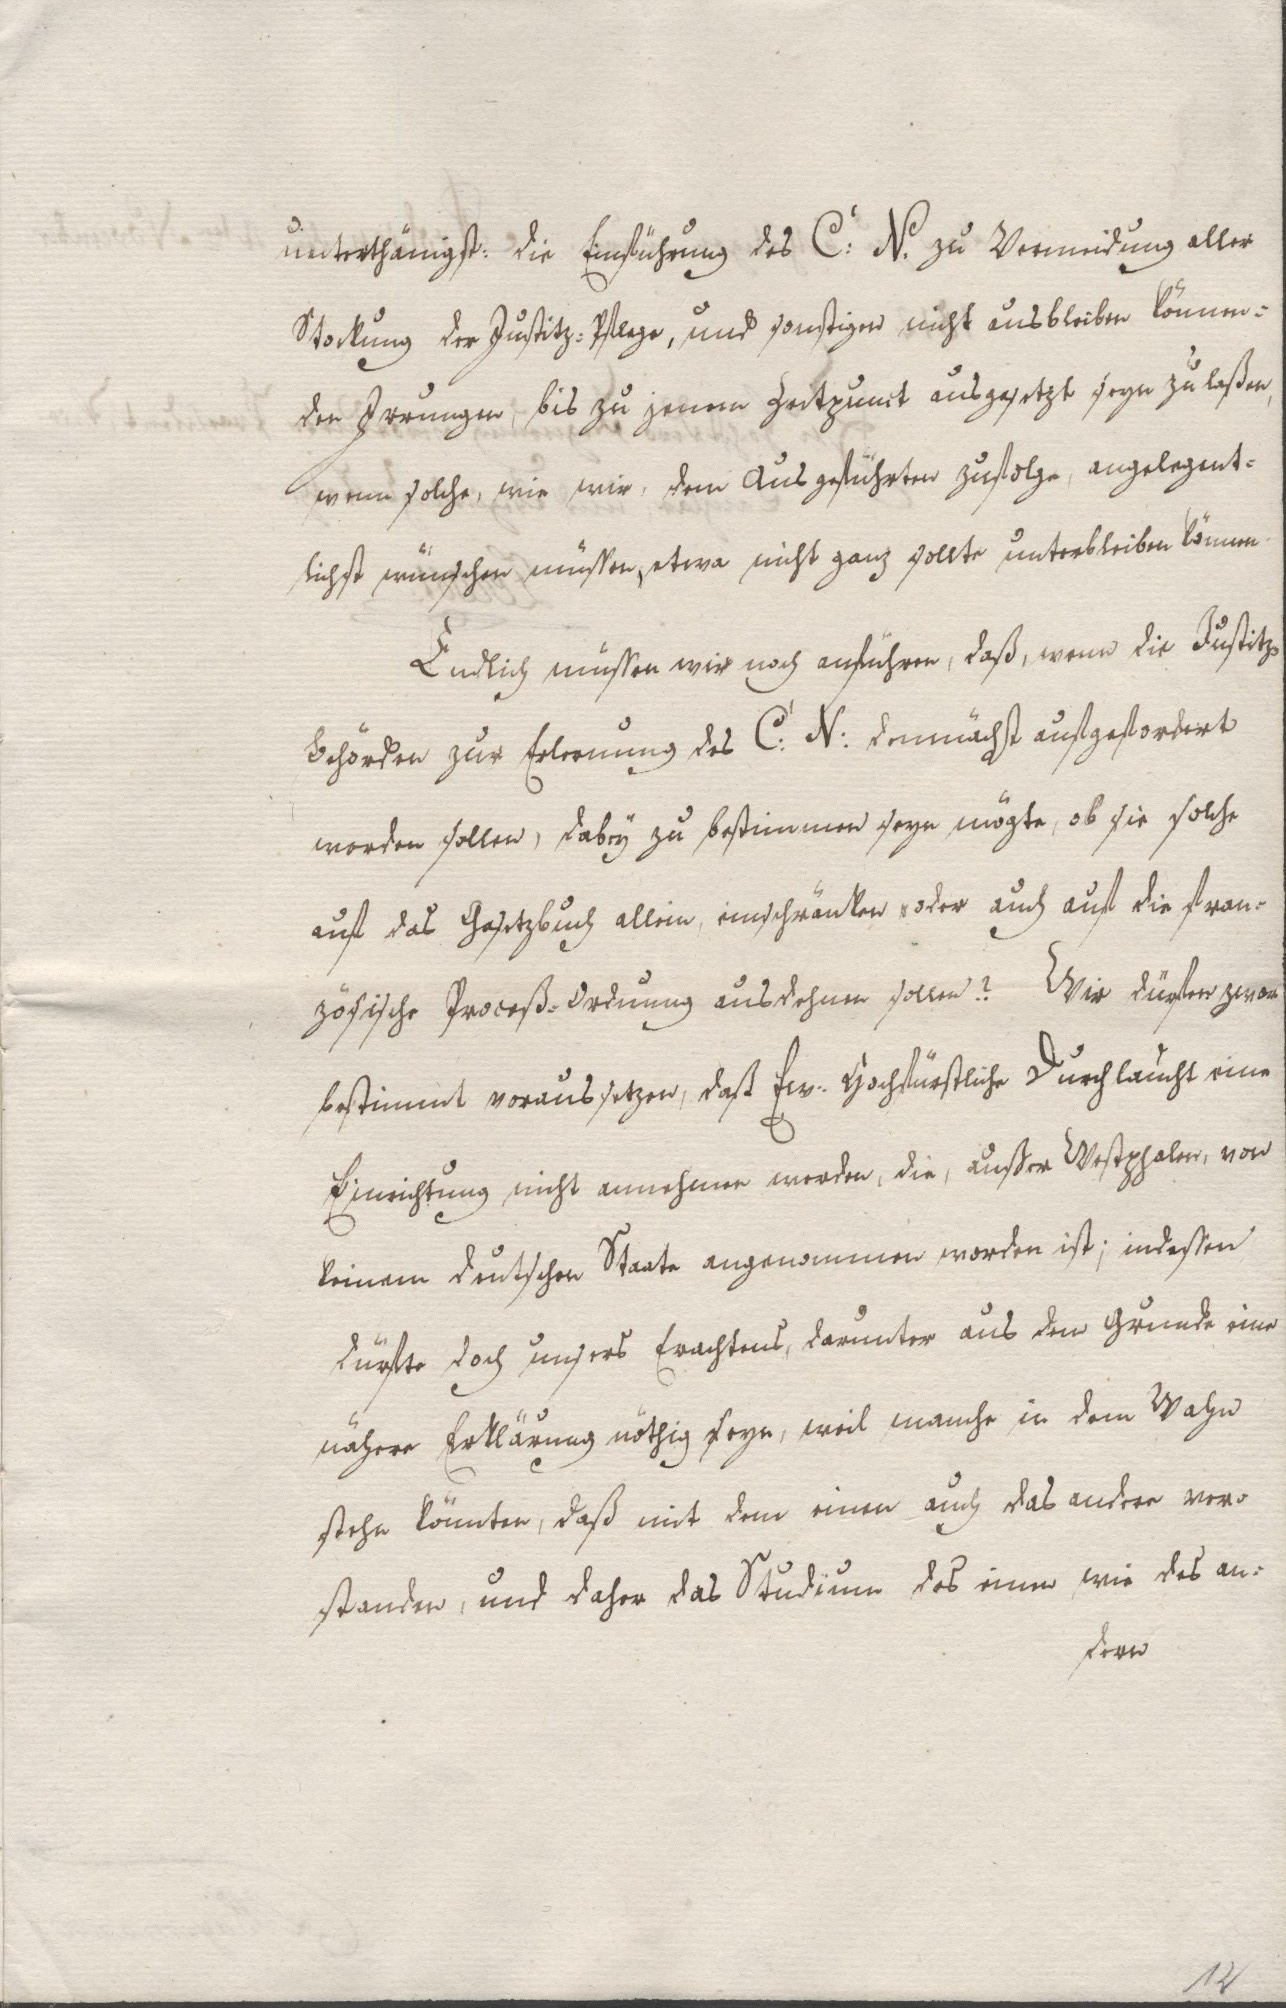 unterthänigst: die Einführung des C: N. zu Vermeidung aller
Stockung der Justitz-Pflege, und sonstigen nicht ausbleiben können-
den Irrungen, bis zu jenem Zeitpunct ausgesetzt seyn zu laßen,
wenn solche, wie wir, dem Ausgeführten zufolge, angelegent-
lichst wünschen müssen, etwa nicht ganz sollte unterbleiben können.
Endlich müssen wir noch anführen, daß, wenn die Justitz-
behörden zur Erlernung des C: N: demnächst aufgefordert
werden sollen, dabey zu bestimmen seyn mögte, ob sie solche
auf das Gesetzbuch allein, einschränken oder auch auf die fran-
zösische Proceß-Ordnung ausdehnen sollen? Wir dürfen zwar
bestimmt voraussetzen, daß Ew. Hochfürstliche Durchlaucht eine
Einrichtung nicht annehmen werden, die, ausser Westphalen, von
keinem deutschen Staate angenommen worden ist; indessen
dürfte doch unsers Erachtens, darunter aus dem Grunde eine
nähere Erklärung nöthig seyn, weil manche in dem Wahn
stehn könnten, daß mit dem einen auch das andere ver-
standen, und daher das Studium des einen wie des an-
dern
12